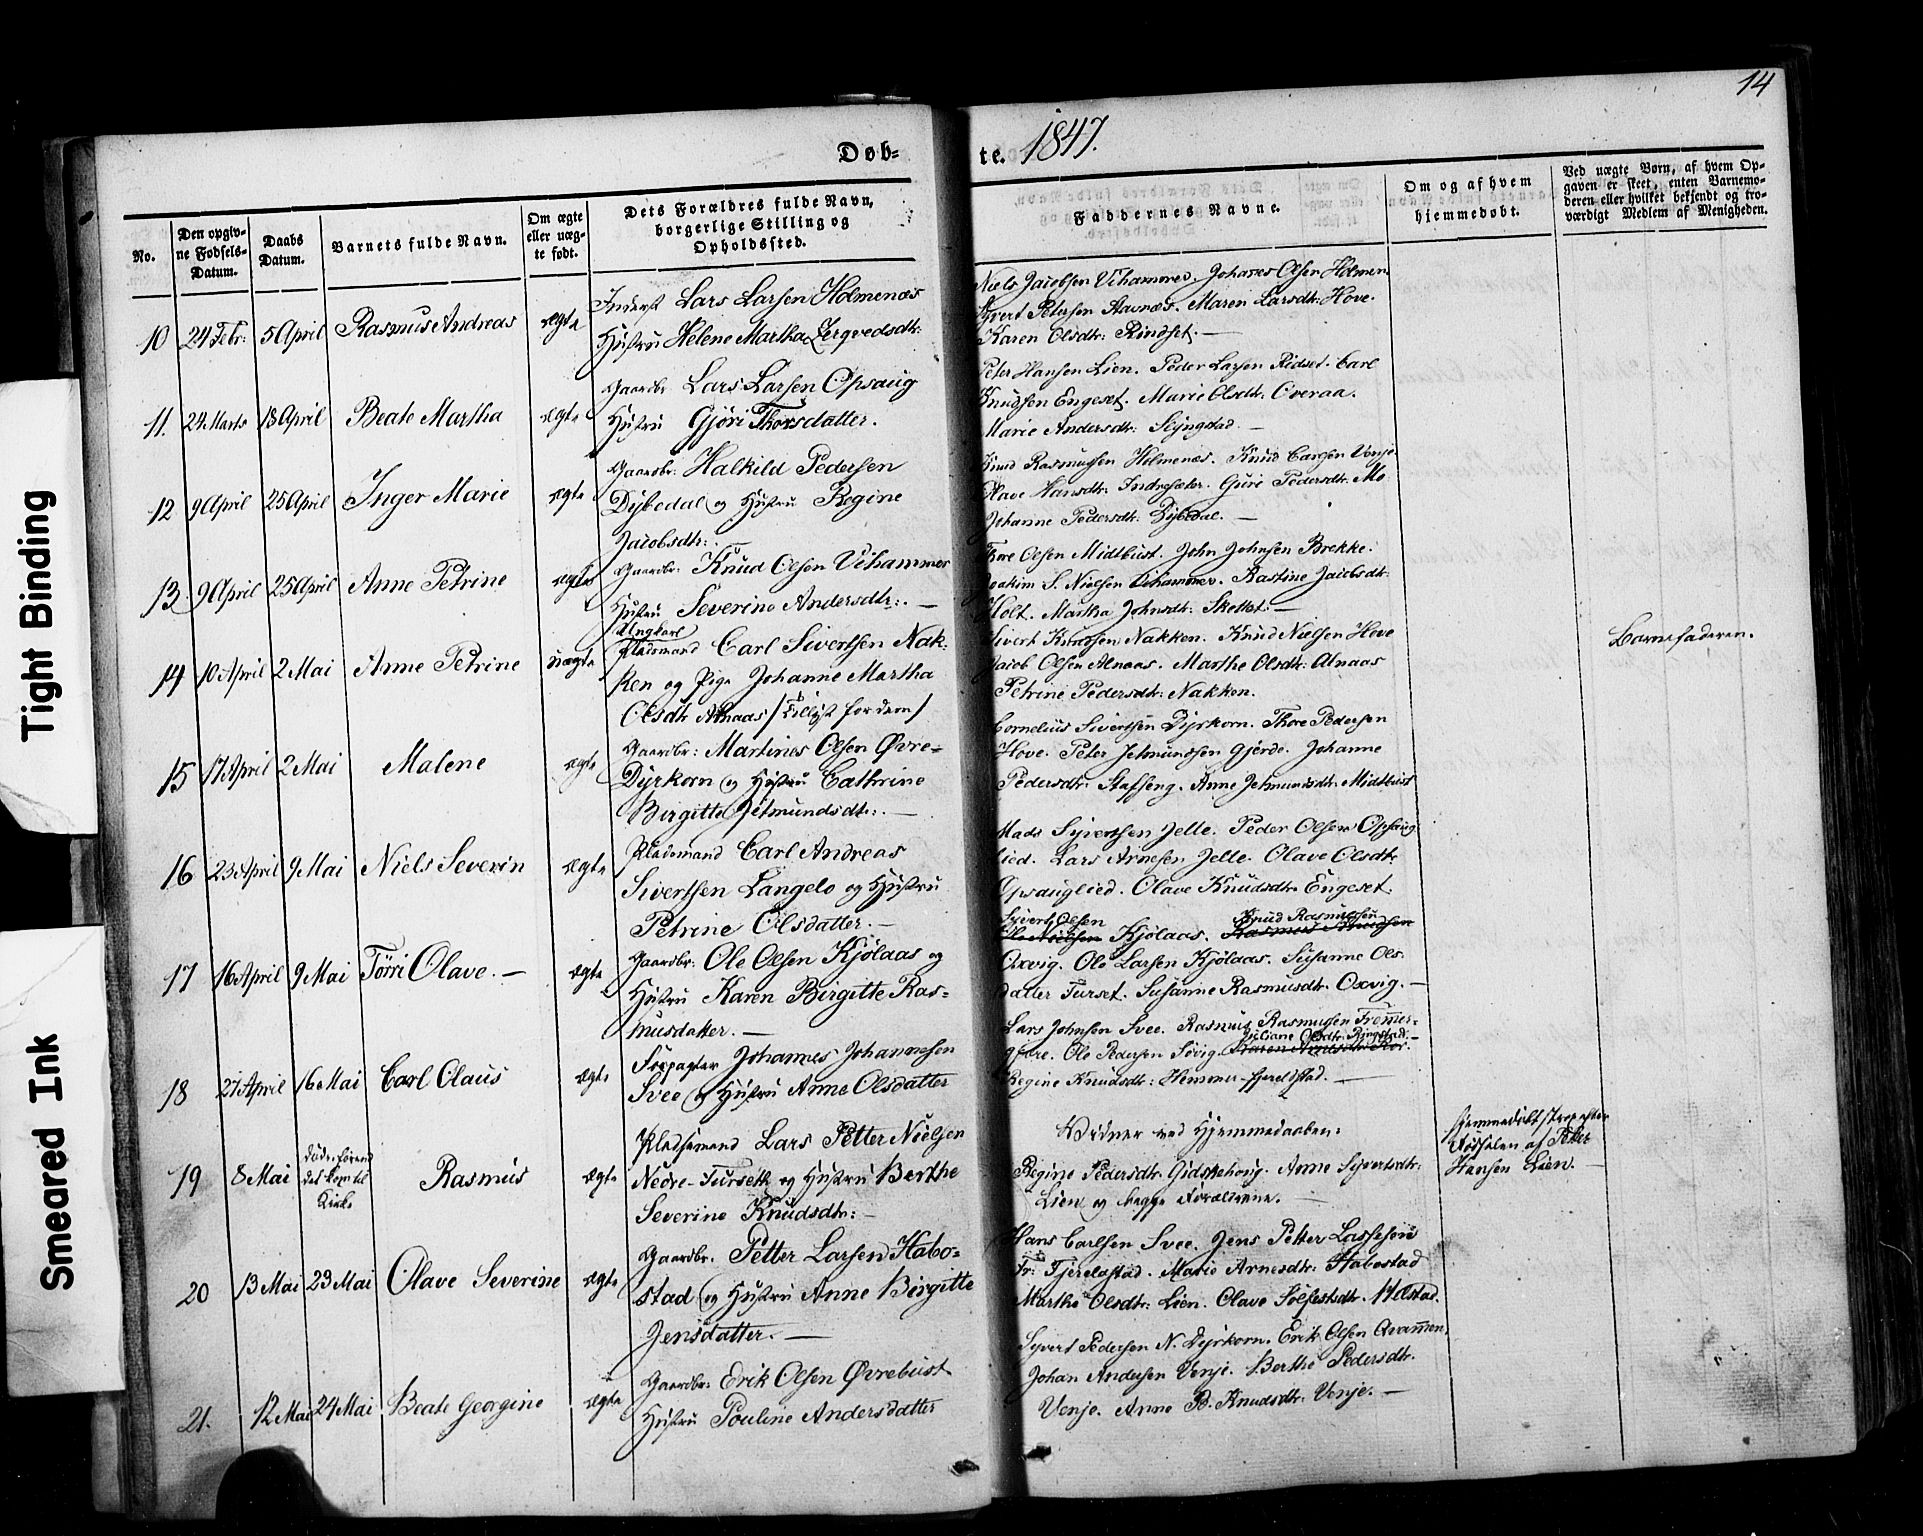 14
Døb-
te. 1847.
No.
Den opgiv-
ne Fødsels-
Datum.
Daabs
Datum.
Barnets fulde Navn.
Om ægte
eller uæg-
te født.
Dets Forældres fulde Navn,
borgerlige Stilling og
Opholdssted.
Faddernes Navne.
Om og af hvem
hjemmedøbt.
Ved uægte Børn, af hvem Op-
gaven er skeet, enten Barnemo-
deren eller hvilket bekjendt og tro-
værdigt Medlem af Menigheden.
10 24 Febr: 5 April Rasmus Andreas ægte
Inderst Lars Larsen Holmenæs
Hustru Helene Martha
Niels Jacobsen Vihammer. Johanes Olsen Holmen
Syvert Petersen Stavnæs. Maren Larsdtr: Hove.
Karen Olsdtr: Rindset. —
11. 24 Marts 18 April Beate Martha ægte
Gaardbr Lars Larsen Opsaug
Hustru Gjøri Thorsdatter.
Peter Hansen Lien. Peder Larsen Ridset. Carl
Knudsen Engeset. Marie Olsdtr: Overaa.
Marie Andersdtr: Slyngstad. —
12 9 April 25 April Inger Marie ægte
Gaardbr: Halkild Pedersen
Dybedal og Hustru Regine
Jacobsdtr:
Knud Rasmussen Holmenæs. Knud Carlsen Venje
Olave Hansdtr: Indresæter. Guri Pedersdtr: Mo
Johanne Pedersdtr: Dybedal. —
13. 9 April 25 April Anne Petrine ægte
Gaardbr: Knud Olsen Vihammer
Hustru Severine Andersdtr: —
Thore Olsen Midtbust. John Johnsen Brekke.
Joakim S. Nielsen Vihammer. Rastine Jacobsdtr:
Holt. Martha Johnsdtr: Skottet: —
14 10 April 2 Mai Anne Petrine uægte
Ungkarl
Pladsmand Carl Sivertsen Nak-
ken og Pige Johanne Martha
Olsdtr Alnaas
Sivert Knudsen Nakken. Knud Nielsen Hove
Jacob Olsen Alnaas. Marthe Olsdtr: Alnaas
Petrine Pedersdtr: Nakken.
Barnefaderen.
15 17 April 2 Mai Malene ægte
Gaardbr: Martines Olsen Øvre-
Dyrkorn og Hustru Cathrine
Birgitte Jetmundsdtr: —
Cornelius Sivertsen Dyrkorn. Thore Pedersen
Hove. Peter Jetmundsen Gjerde. Johanne
Pedersdtr: Staffeng. Anne Jetmundsdtr: Midtbust
16 23 April 9 Mai Niels Severin ægte
Pladsmand Carl Andreas
Sivertsen Langelo og Hustru
Petrine Olsdatter. —
Mads Syvertsen Jelle. Peder Olsen Opsaug
lied. Lars Arnesen Jelle. Olave Olsdtr
Opsauglied. Olave Knudsdtr. Engeset.
17 16 April 9 Mai Tørri Olave. — ægte
Gaardbr: Ole Olsen Kjølaas og
Hustru Karen Birgitte Ras-
musdatter. —
Syvert Olsen Knud Rasmussen
Ole Nielsen Kjølaas. Rasmus Knudsen
Oxvig. Ole Larsen Kjølaas. Susanne Ols-
datter Furset. Susanne Rasmusdtr. Oxvig. —
18 27 April 16 Mai Carl Olaus ægte
Forpagter Johannes Johannesen
Svee og Hustru Anne Olsdatter
Lars Johnsen Svee. Rasmus Rasmussen Frømer-
Juliane Olsdtr: Ringstad. —
gjære. Ole Pedersen Søvig.
Regine Knudsdtr: Hemmer-fjereldstad. —
19 8 Mai døde førend
det kom til
Kirke
Rasmus ægte
Pladsemand Lars Petter Nielsen
Nedre-Furseth og Hustru Berthe
Severine Knudsdtr: —
Vidner ved Hjemmedaaben:
Regine Pedersdtr: Gidskehoug. Anne Syvertsdtr:
Lien og begge Forældrene. —
hjemmedøbt strax efter
Fødselen af Peter
Hansen Lien. —
20 13 Mai 23 Mai Olave Severine ægte
Gaardbr. Petter Larsen Habo-
stad og Hustru Anne Birgitte
Jensdatter. —
Hans Carlsen Svee. Jens Petter Lassesen
Fr: Fjereldstad. Marie Arnesdtr: Habostad
Marthe Olsdtr: Lien. Olave Solfestsdtr.
21. 12 Mai 24 Mai Beate Georgine ægte
Gaardbr: Erik Olsen Øvrebust
Hustru Pouline Andersdatter
Syvert Pedersen N. Dyrkorn. Erik Olsen Qvammen.
Johan Andersen Venje. Berthe Pedersdtr.
Venje. Anne B. Knudsdtr: Venje. —
Tight Binding
Smeared Ink